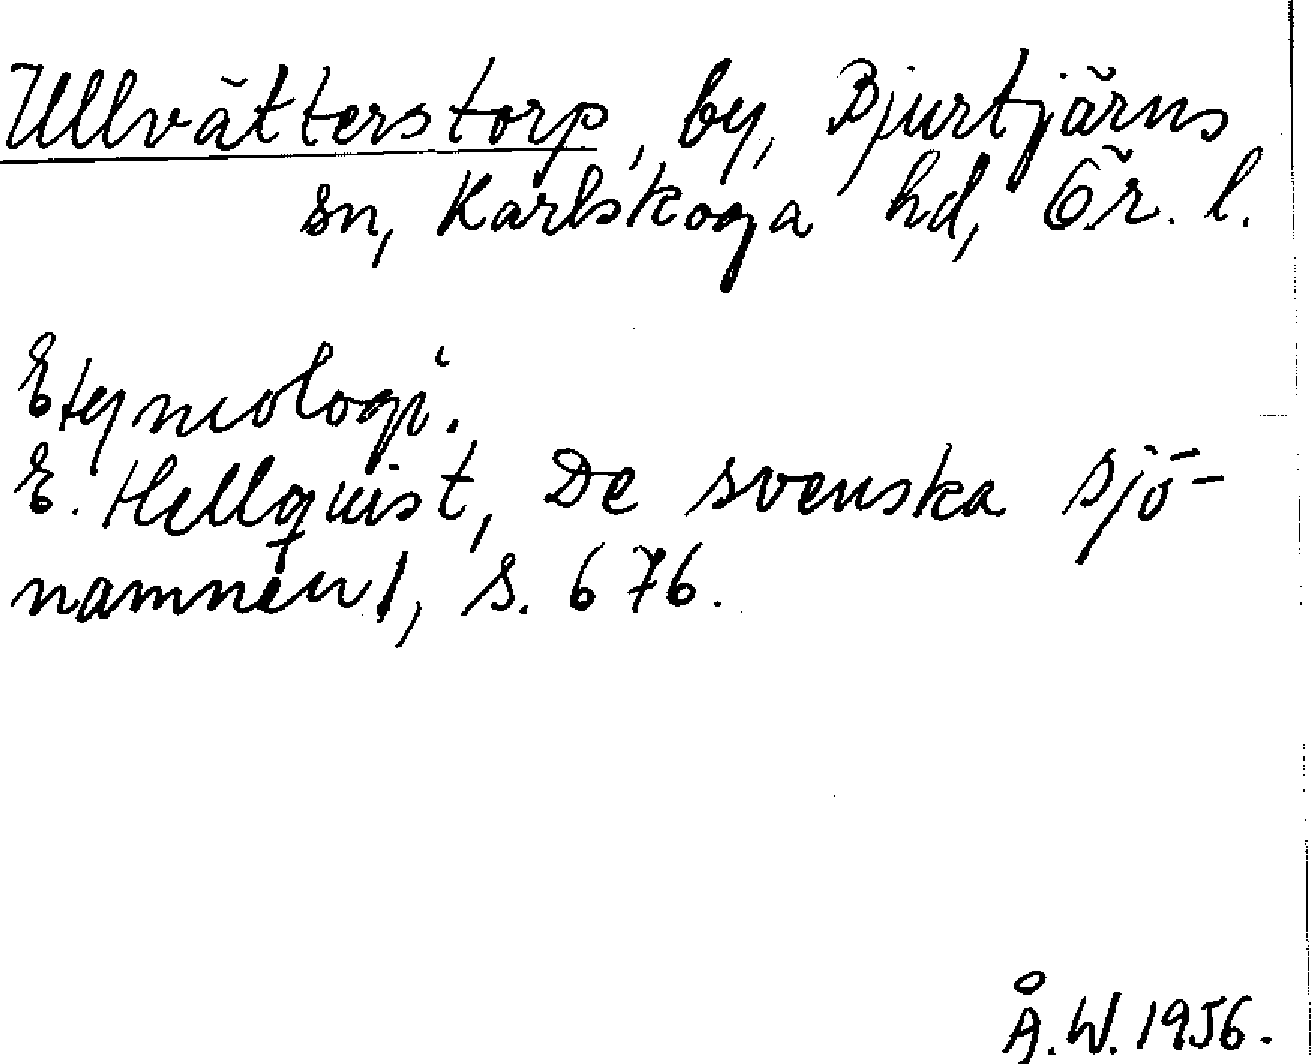 Ullvätterstorp, by, Bjurtjärns
sn, Karlskoga hd, Ör. l.
Etymologi.
E. Hellquist, De svenska sjö-
namnen 1, s. 676.
Å. W. 1956.